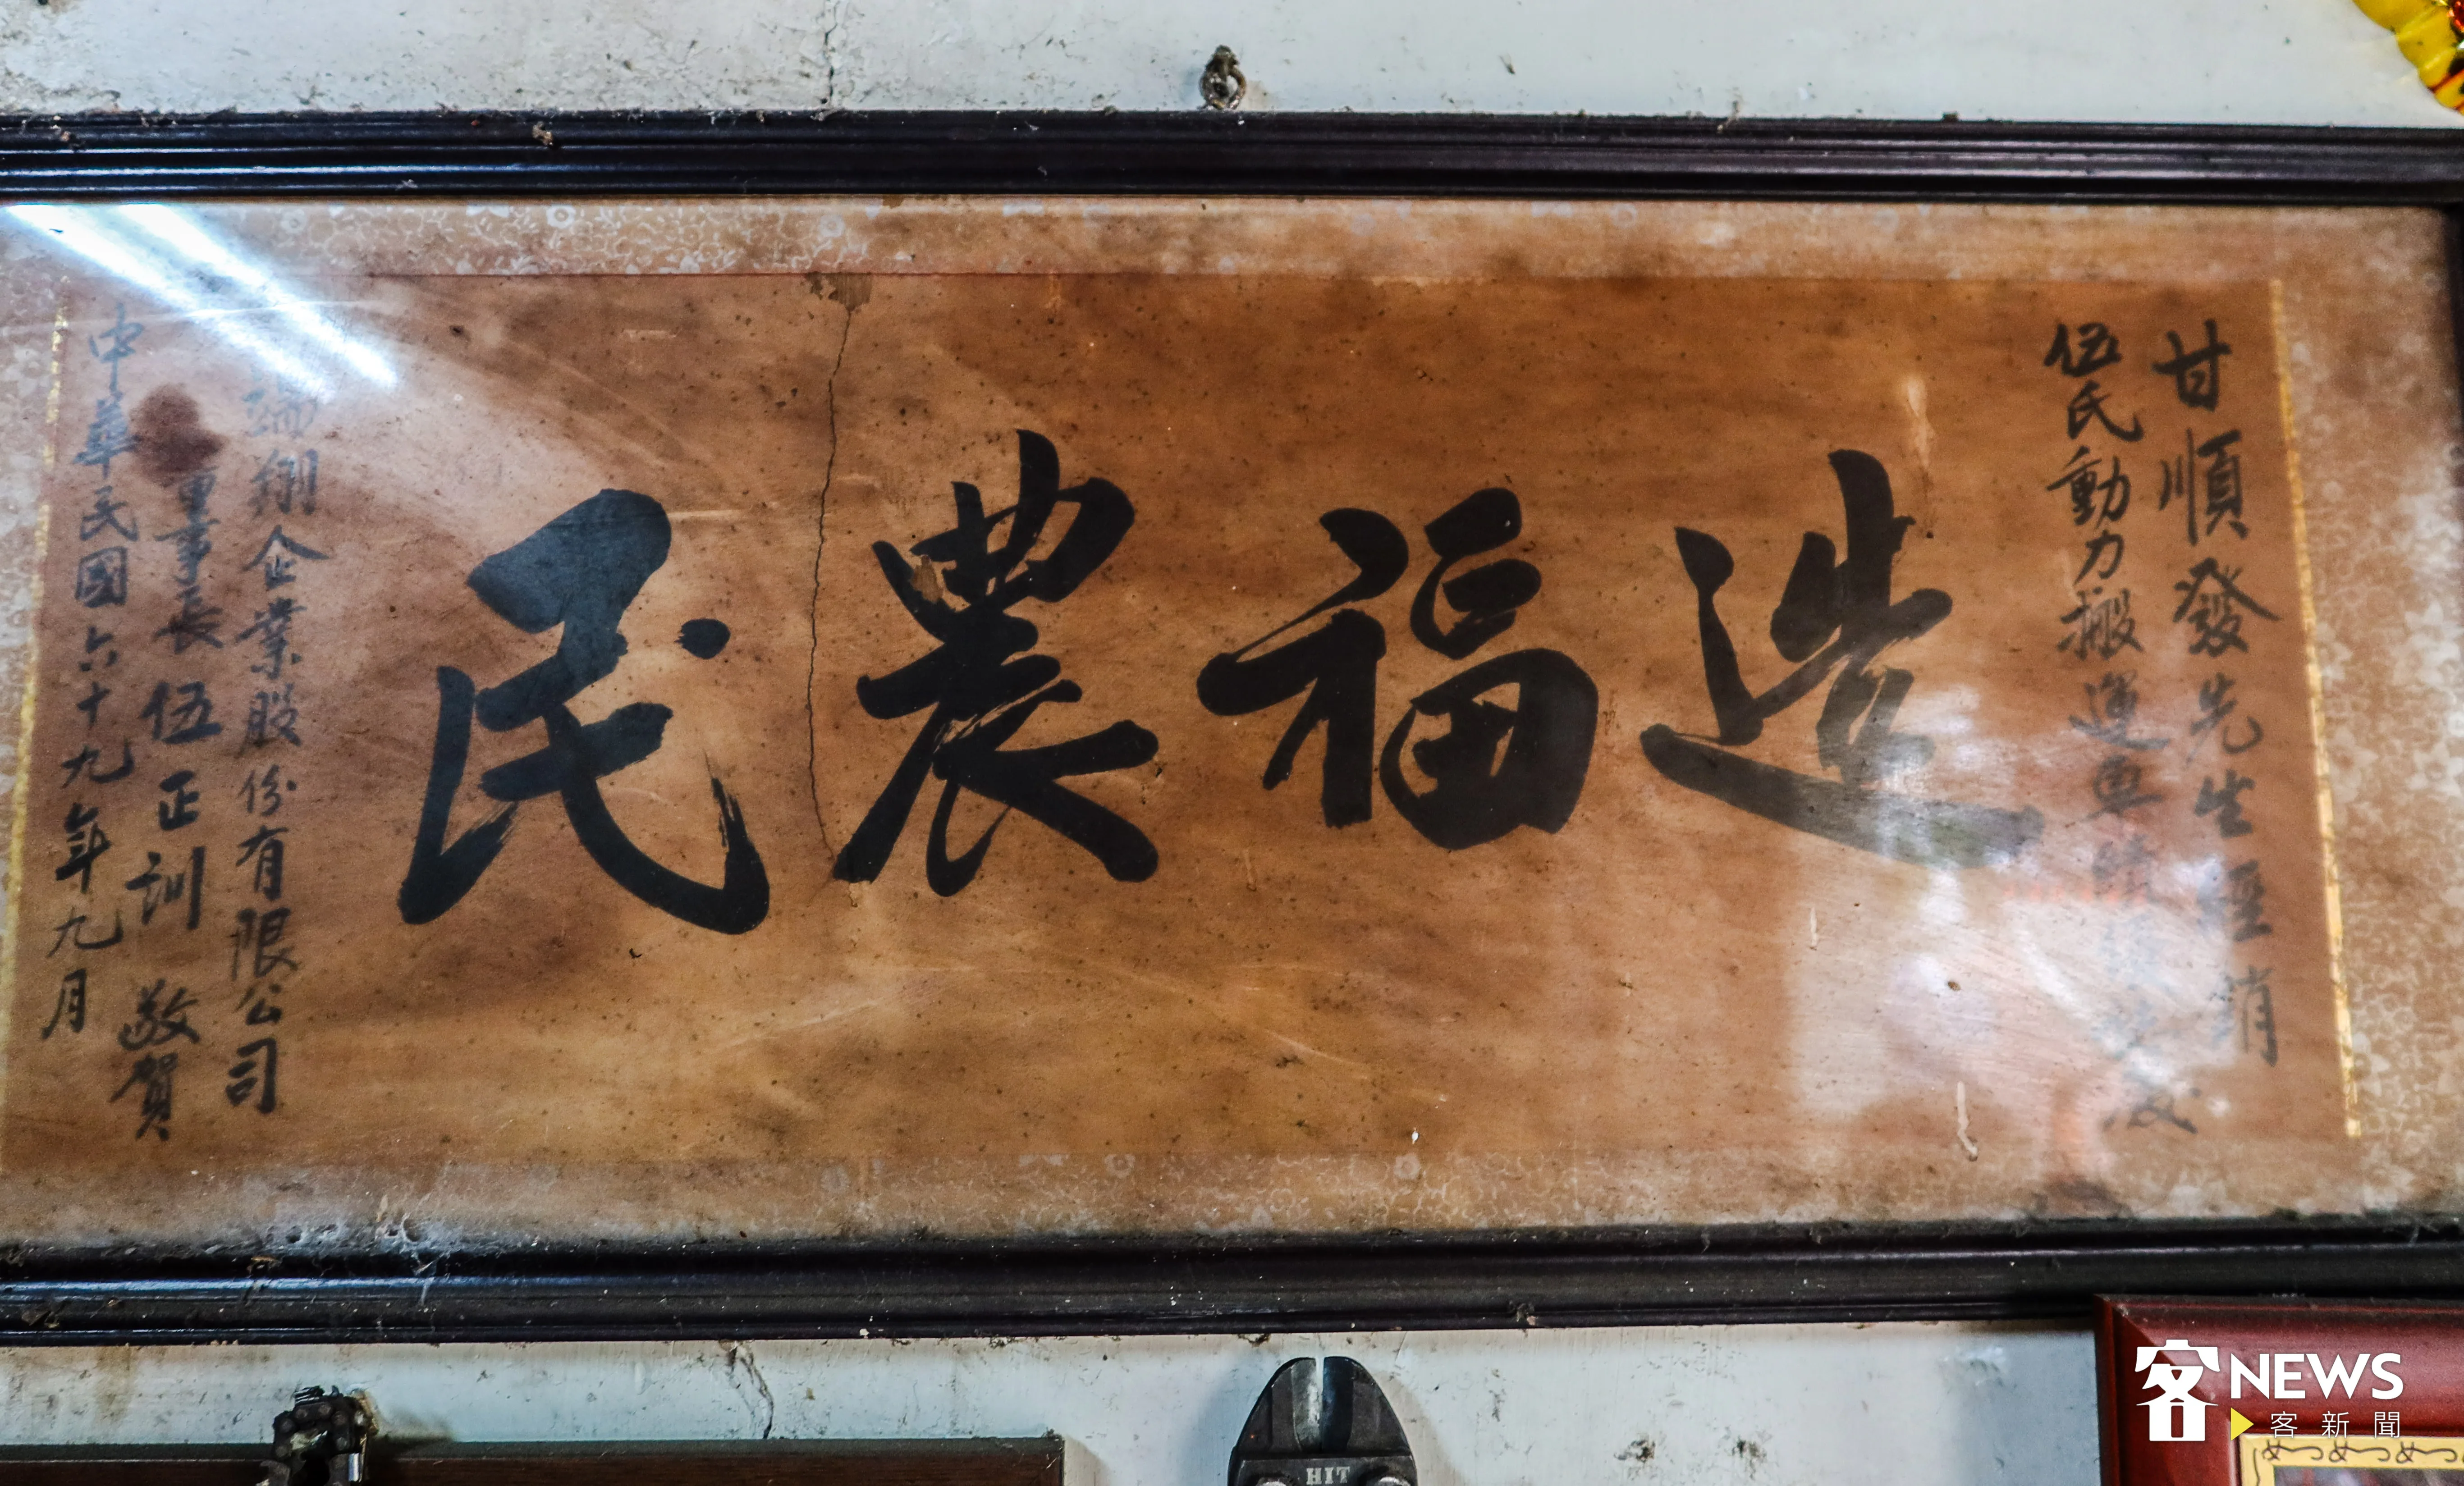 甘順發先生經銷
伍氏動力搬運車
造福農民
瑞翔企業股份有限公司
董事長 伍正訓 敬賀
中華民國六十九年九月
HIT
客NEWS
客新聞